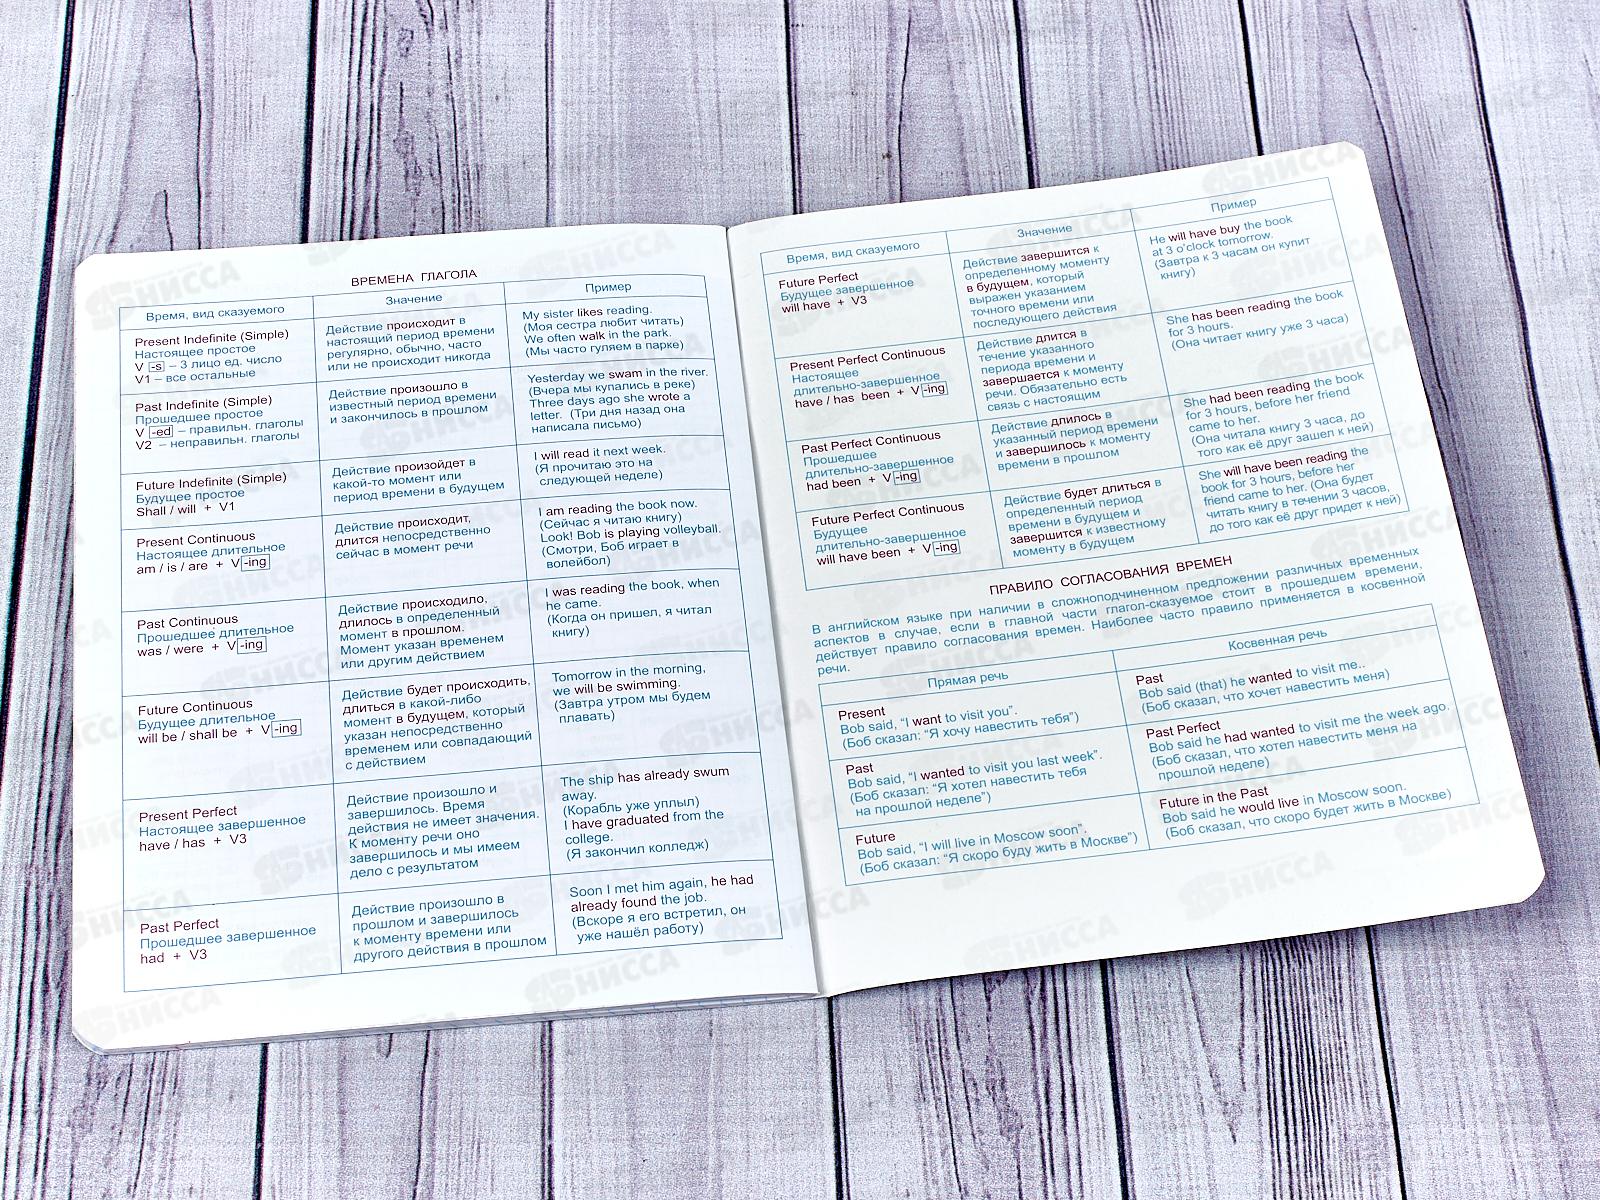 ВРЕМЕНА ГЛАГОЛА
Время, вид сказуемого
Значение
Пример
Present Indefinite (Simple)
Настоящее простое
V -s – 3 лицо ед. число
V1 – все остальные
Действие происходит в
настоящий период времени
регулярно, обычно, часто
или не происходит никогда
My sister likes reading.
(Моя сестра любит читать)
We often walk in the park.
(Мы часто гуляем в парке)
Past Indefinite (Simple)
Прошедшее простое
V -ed – правильн. глаголы
V2 – неправильн. глаголы
Действие произошло в
известный период времени
и закончилось в прошлом
Yesterday we swam in the river.
(Вчера мы купались в реке)
Three days ago she wrote a
letter. (Три дня назад она
написала письмо)
Future Indefinite (Simple)
Будущее простое
Shall / will + V1
Действие произойдет в
какой-то момент или
период времени в будущем
I will read it next week.
(Я прочитаю это на
следующей неделе)
Present Continuous
Настоящее длительное
am / is / are + V -ing
Действие происходит,
длится непосредственно
сейчас в момент речи
I am reading the book now.
(Сейчас я читаю книгу)
Look! Bob is playing volleyball.
(Смотри, Боб играет в
волейбол)
Past Continuous
Прошедшее длительное
was / were + V -ing
Действие происходило,
длилось в определенный
момент в прошлом.
Момент указан временем
или другим действием
I was reading the book, when
he came.
(Когда он пришел, я читал
книгу)
Future Continuous
Будущее длительное
will be / shall be + V -ing
Действие будет происходить,
длиться в какой-либо
момент в будущем, который
указан непосредственно
временем или совпадающий
с действием
Tomorrow in the morning,
we will be swimming.
(Завтра утром мы будем
плавать)
Present Perfect
Настоящее завершенное
have / has + V3
Действие произошло и
завершилось. Время
действия не имеет значения.
К моменту речи оно
завершилось и мы имеем
дело с результатом
The ship has already swum
away.
(Корабль уже уплыл)
I have graduated from the
college.
(Я закончил колледж)
Past Perfect
Прошедшее завершенное
had + V3
Действие произошло в
прошлом и завершилось
к моменту времени или
другого действия в прошлом
Soon I met him again, he had
already found the job.
(Вскоре я его встретил, он
уже нашёл работу)
Время, вид сказуемого
Значение
Пример
Future Perfect
Будущее завершенное
will have + V3
Действие завершится к
определенному моменту
в будущем, который
выражен указанием
точного времени или
последующего действия
He will have buy the book
at 3 o'clock tomorrow.
(Завтра к 3 часам он купит
книгу)
Present Perfect Continuous
Настоящее
длительно-завершенное
have / has been + V -ing
Действие длится в
течение указанного
периода времени и
завершается к моменту
речи. Обязательно есть
связь с настоящим
She has been reading the book
for 3 hours.
(Она читает книгу уже 3 часа)
Past Perfect Continuous
Прошедшее
длительно-завершенное
had been + V -ing
Действие длилось в
указанный период времени
и завершилось к моменту
времени в прошлом
She had been reading the book
for 3 hours, before her friend
came to her.
(Она читала книгу 3 часа, до
того как её друг зашел к ней)
Future Perfect Continuous
Будущее
длительно-завершенное
will have been + V -ing
Действие будет длиться в
определенный период
времени в будущем и
завершится к известному
моменту в будущем
She will have been reading the
book for 3 hours, before her
friend came to her. (Она будет
читать книгу в течении 3 часов,
до того как её друг придет к ней)
ПРАВИЛО СОГЛАСОВАНИЯ ВРЕМЕН
В английском языке при наличии в сложноподчиненном предложении различных временных
аспектов в случае, если в главной части глагол-сказуемое стоит в прошедшем времени,
действует правило согласования времен. Наиболее часто правило применяется в косвенной
речи.
Прямая речь
Косвенная речь
Present
Bob said, “I want to visit you”.
(Боб сказал: “Я хочу навестить тебя”)
Past
Bob said (that) he wanted to visit me..
(Боб сказал, что хочет навестить меня)
Past
Bob said, “I wanted to visit you last week”.
(Боб сказал: “Я хотел навестить тебя
на прошлой неделе”)
Past Perfect
Bob said he had wanted to visit me the week ago.
(Боб сказал, что хотел навестить меня на
прошлой неделе)
Future
Bob said, “I will live in Moscow soon”.
(Боб сказал: “Я скоро буду жить в Москве”)
Future in the Past
Bob said he would live in Moscow soon.
(Боб сказал, что скоро будет жить в Москве)